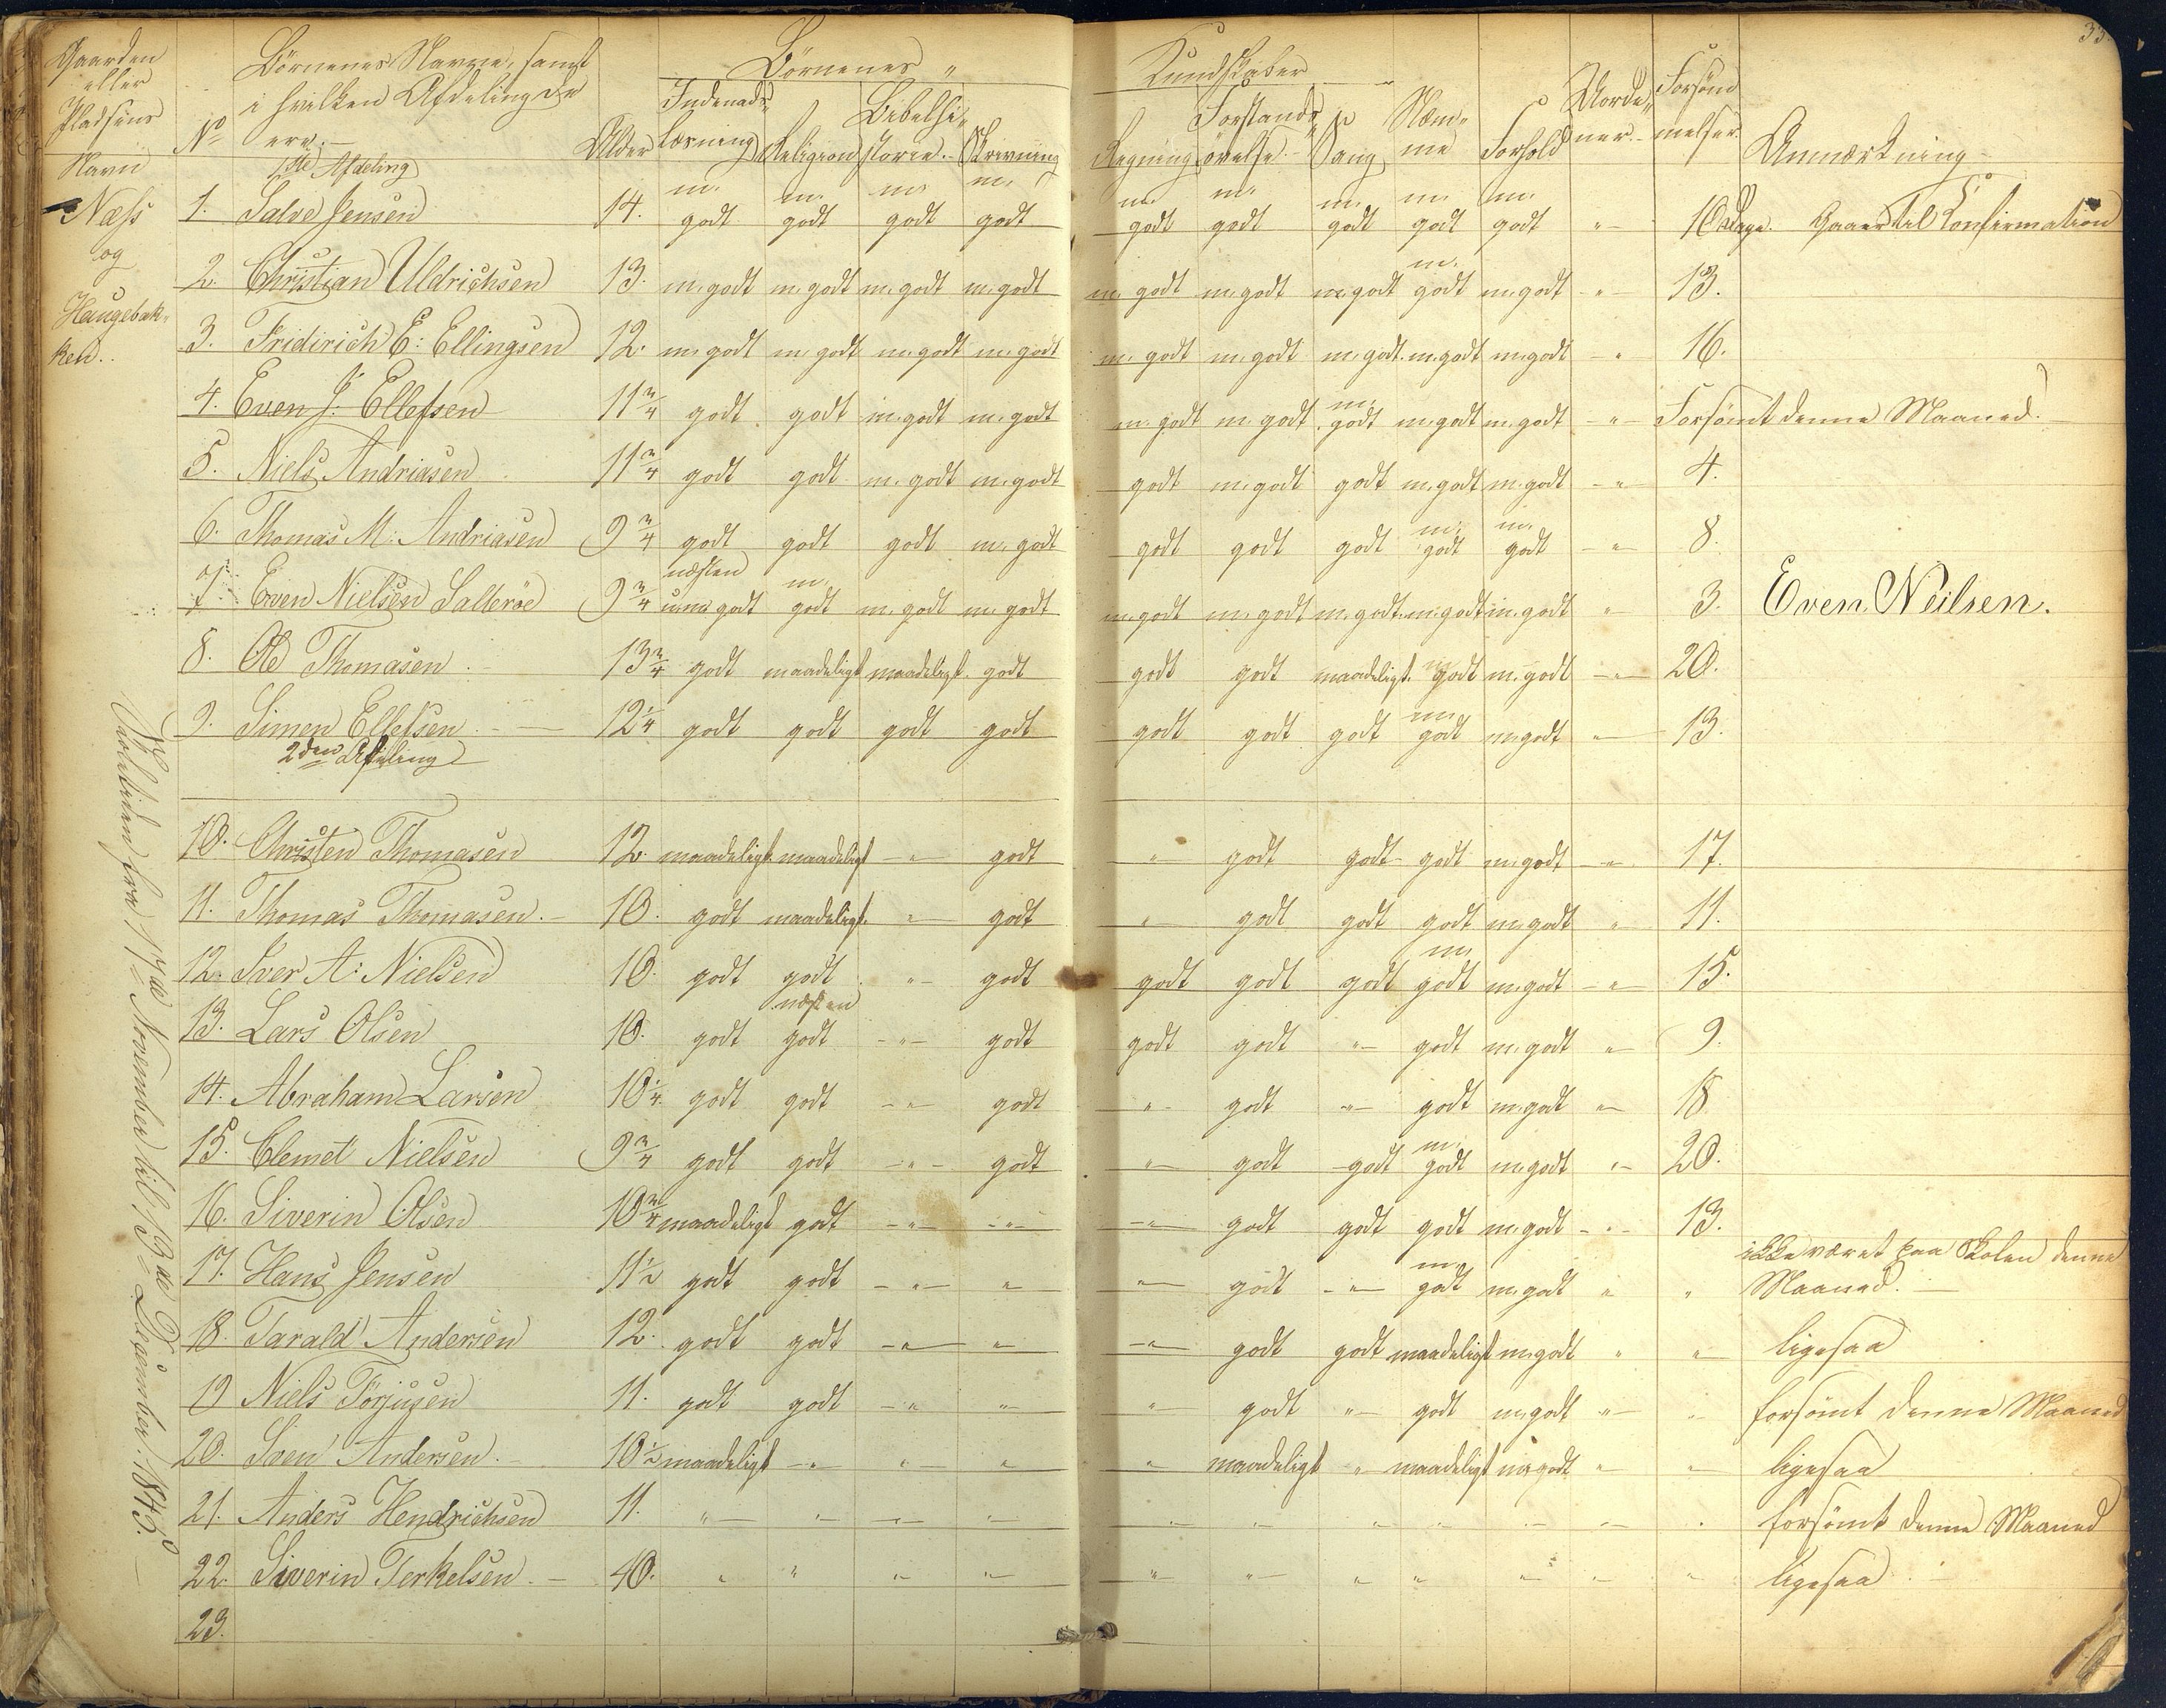 33.
Gaarden eller Pladsens Navn | No | Börnenes Navne, samt i hvilken Afdeling de ere. | Alder | Börnenes " Kundskaber
Indenadslæsning | Religion | Bibelhistorie. | Skrivning | Regning | Forstandsövelse. | Sang | Næmme | Forhold | | Forsömmelser | Anmærkning
Næss og Haugebakken..
1ste Afdeling
1. Salve Jensen 14. m. godt m. godt m. godt m. godt m. godt m. godt m. godt m. godt m. godt " 10 Dage. Gaaer til Confirmation
2. Christian Uldrichsen 13. m. godt m. godt m. godt m. godt m. godt m. godt m. godt m. godt m. godt " 13.
3. Fridirich E: Ellingsen 12. m. godt m. godt m. godt m. godt m. godt m. godt m. godt. m. godt m. godt " 16.
4. Even J: Ellefsen 11 3/4 godt godt m. godt m. godt m. godt m. godt m. godt m. godt m. godt " Forsömt denne Maaned.
5. Niels Andriasen 11 3/4 godt godt m. godt m. godt godt m. godt godt m. godt m. godt " 4.
6. Thomas M: Andriasen 9 3/4 godt godt godt m. godt godt godt godt m. godt m. godt " 8.
7. Even Nielsen Salleröe 9 3/4 næsten m. godt m. godt m. godt m. godt m. godt m. godt m. godt. m. godt m. godt " 3. Even Neilsen.
8. Ole Thomasen. 13 3/4 godt maadeligt maadeligt godt godt godt maadeligt. m. godt m. godt " 20.
9. Simen Ellefsen. 12 1/4 godt godt godt godt godt godt godt m. godt m. godt " 13.
2den Afdeling
10. Christen Thomasen 12. maadeligt maadeligt " godt " godt godt godt m. godt " 17.
11. Thomas Thomasen. 10. godt maadeligt. " godt " godt godt godt m. godt " 11.
12. Iver A: Nielsen 10. godt godt " godt godt godt godt m. godt m. godt " 15.
13. Lars Olsen 10. godt næsten godt " godt godt godt " godt m. godt " 9.
14. Abraham Larsen 10 1/4 godt godt " godt " godt " godt m. godt " 18
15. Clemet Nielsen 9 3/4 godt godt " godt " godt godt m. godt m. godt " 20.
16. Siverin Olsen 10 3/4 maadeligt godt " " " godt godt godt m. godt " 13.
17. Hans Jensen 11 1/2 godt godt " " " godt " m. godt m. godt " " ikke været paa Skolen denne Maaned.
18. Tarald Andersen 12. godt godt " " " godt godt maadeligt m. godt " " ligesaa
19 Niels Törjusen 11. godt godt " " " godt " godt m. godt " " forsömt denne Maaned
20. Sven Andersen. 10 1/2 maadeligt " " " " maadeligt " maadeligt m. godt " " ligesaa
21. Anders Hendrichsen 11. " " " " " " " " " " " forsömt denne Maaned
22. Siverin Terkelsen. 10. " " " " " " " " " " " ligesaa.
23.
fra 17de November til 19de Desember. 1845.